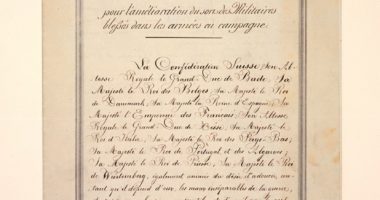 pour l'amélioration du sort des Militaires
blessés dans les armées en campagne.
La Confédération Suisse, Son Al-
tesse Royale le Grand-Duc de Bade, Sa
Majesté le Roi des Belges, Sa Majesté le Roi
de Danemark, Sa Majesté la Reine d'Espagne, Sa
Majesté l'Empereur des Français, Son Altesse
Royale le Grand-Duc de Hesse, Sa Majesté le
Roi d'Italie, Sa Majesté le Roi des Pays-Bas,
Sa Majesté le Roi de Portugal et des Algarves,
Sa Majesté le Roi de Prusse, Sa Majesté le Roi
de Würtemberg, également animés du désir d'adoucir, au-
tant qu'il dépend d'eux, les maux inséparables de la guerre,